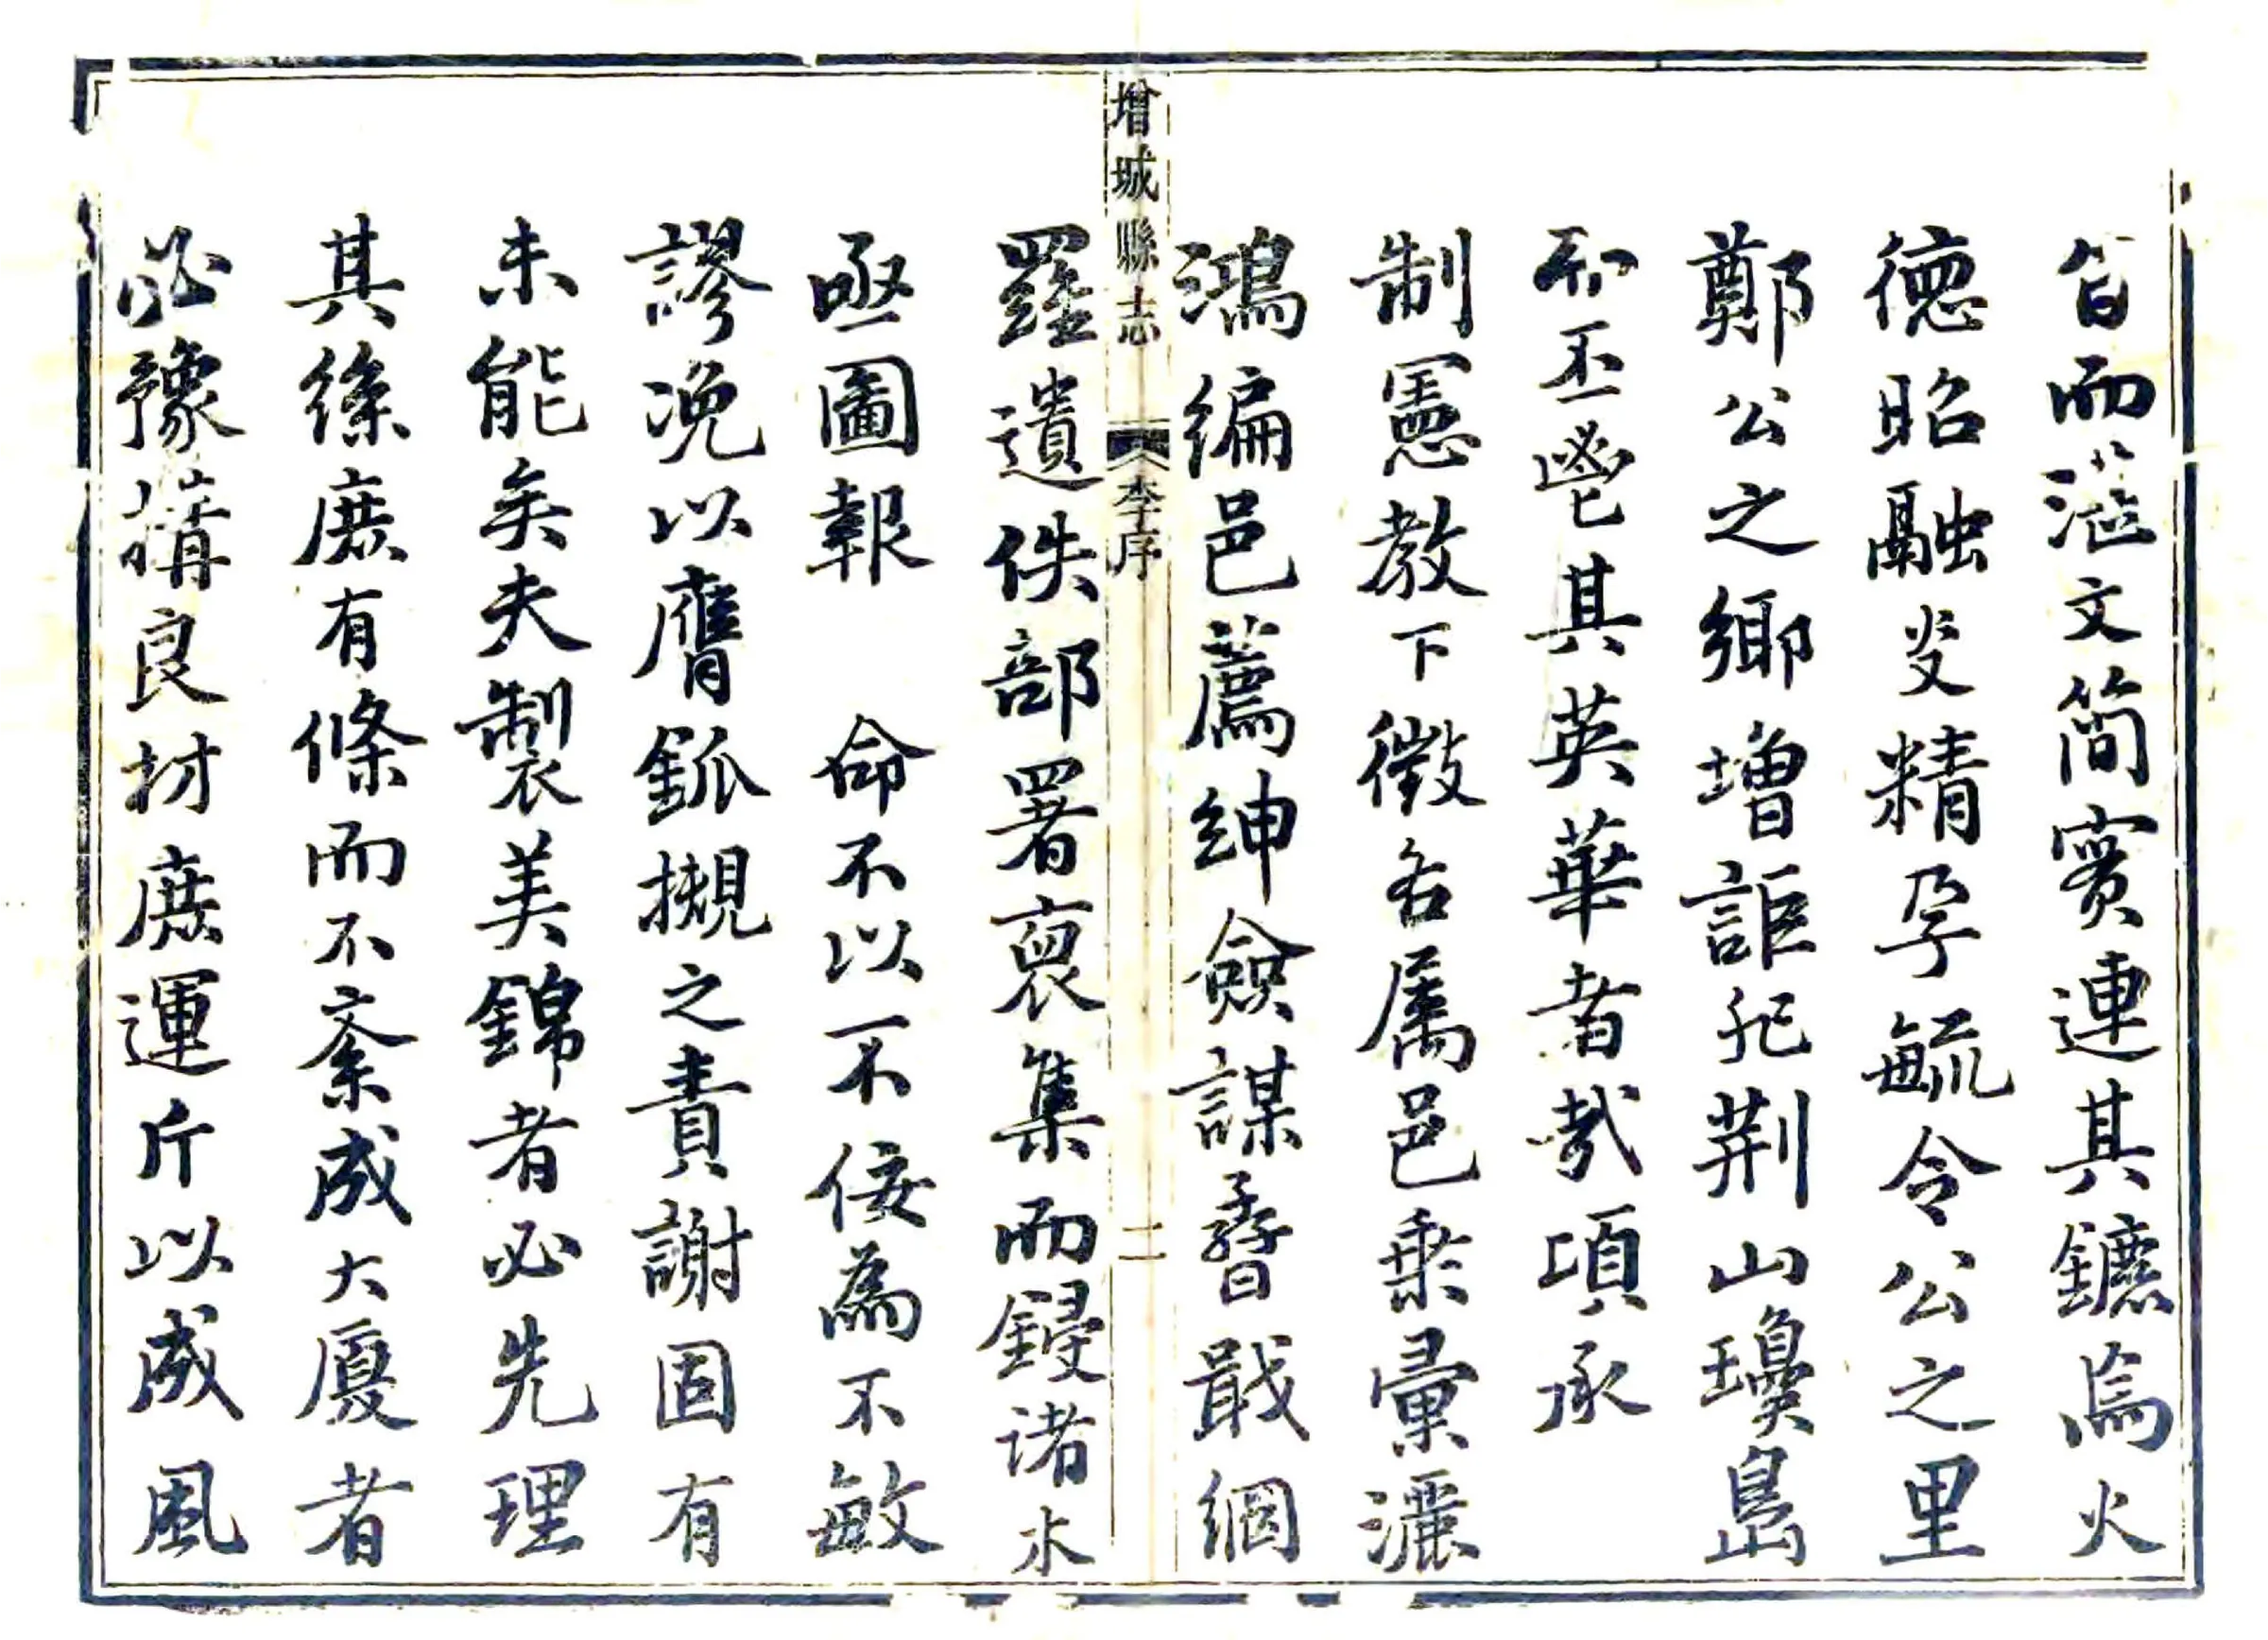 旨而湛文簡實連其鑣焉火
德昭融炎精孕毓令公之里
鄭公之鄉增詎非荆山瓊島
而丕鬯其英華者哉項承
制憲教下徵各屬邑乘彙灑
鴻編邑薦紳僉謀孴戢網
增城縣志 李序 二
羅遺佚部署裒集而鋟諸木
亟圖報 命不以不佞為不敏
謬浼以膺鈲摫之責謝固有
未能矣夫製美錦者必先理
其絲庶有條而不紊成大廈者
必豫構良材庶運斤以成風